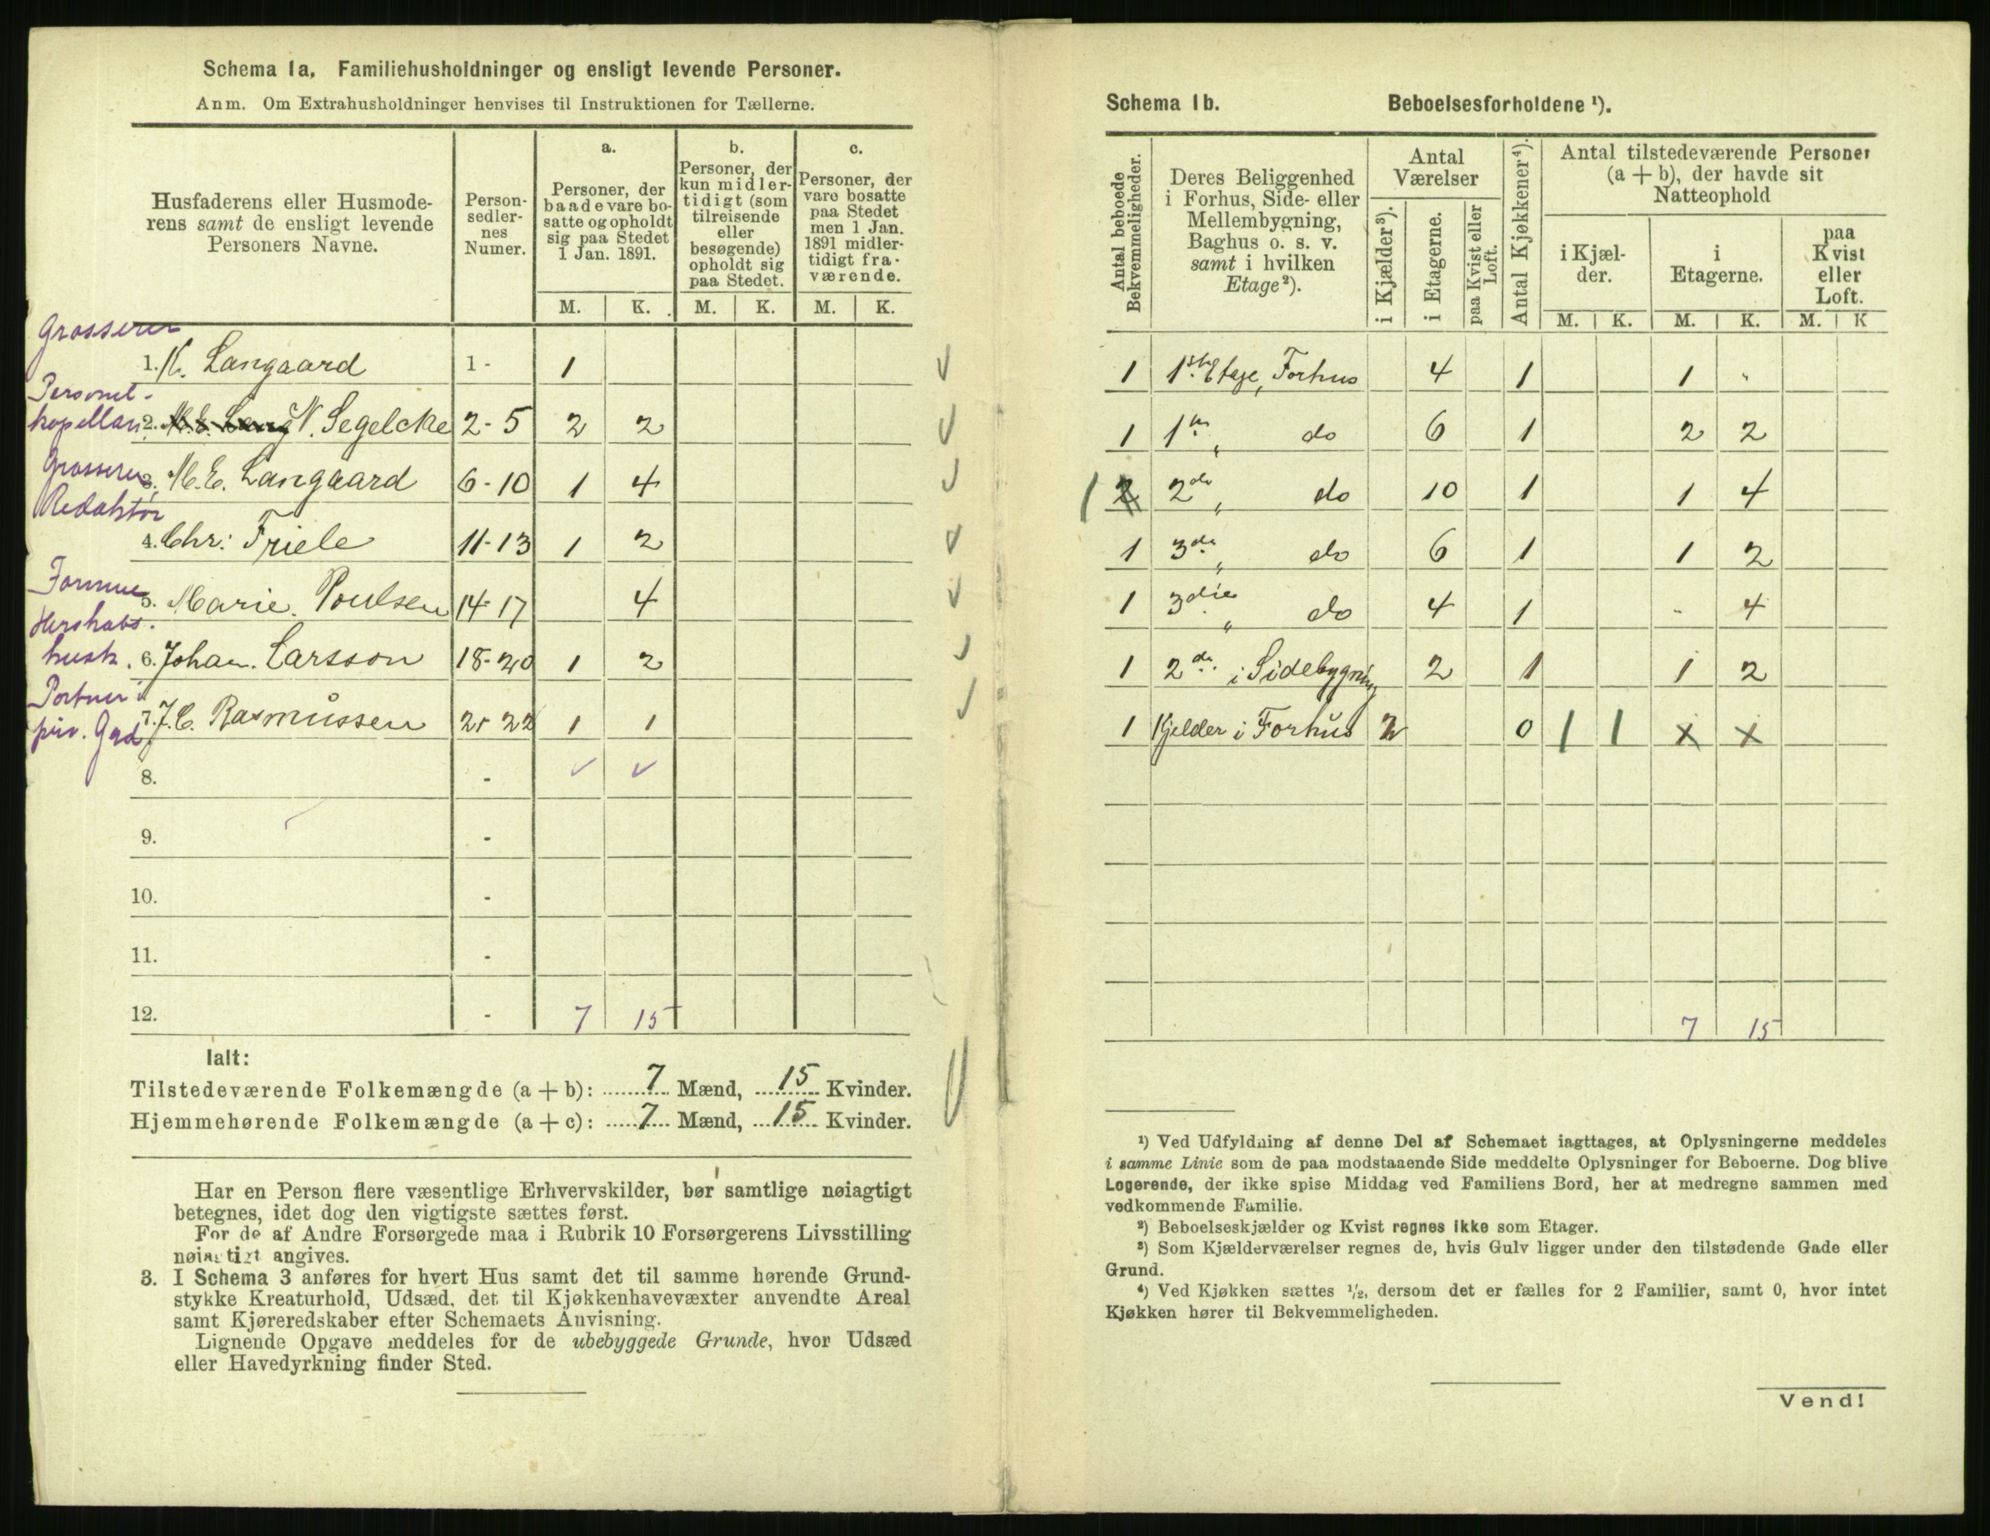 Schema 1a. Familiehusholdninger og ensligt levende Personer.
Anm. Om Extrahusholdninger henvises til Instruktionen for Tællerne.
Husfaderens eller Husmoderens samt de ensligt levende Personers Navne.
Personsedlernes Numer.
a.
Personer, der baade vare bosatte og opholdt sig paa Stedet 1 Jan. 1891.
b.
Personer, der kun midlertidigt (som tilreisende eller besøgende) opholdt sig paa Stedet.
c.
Personer, der vare bosatte paa Stedet men 1 Jan. 1891 midlertidigt fraværende.
M. K. M. K. M. K.
Grosserer
1. K. Langaard 1 - 1
Personel-
kapellan 2. N. Segelcke 2-5 2 2
Grosserer 3. M. E. Langaard 6-10 1 4
Redaktør
4. Chr: Friele 11-13 1 2
Formue
5. Marie. Poulsen 14-17 4
Herskabs.
husk. 6. Johan. Larsson 18-20 1 2
Portner i
priv. Gad 7. J. C. Rasmussen 21 22 1 1
8. -
9. -
10. -
11. -
12. - 7 15
Ialt:
Tilstedeværende Folkemængde (a + b): 7 Mænd, 15 Kvinder.
Hjemmehørende Folkemængde (a + c): 7 Mænd, 15 Kvinder.
Har en Person flere væsentlige Erhvervskilder, bør samtlige nøiagtigt
betegnes, idet dog den vigtigste sættes først.
For de af Andre Forsørgede maa i Rubrik 10 Forsørgerens Livsstilling
nøiagtigt angives.
3. I Schema 3 anføres for hvert Hus samt det til samme hørende Grund-
stykke Kreaturhold, Udsæd, det til Kjøkkenhavevæxter anvendte Areal
samt Kjøreredskaber efter Schemaets Anvisning.
Lignende Opgave meddeles for de ubebyggede Grunde, hvor Udsæd
eller Havedyrkning finder Sted.
Schema 1b. Beboelsesforholdene ¹).
Antal beboede Bekvemmeligheder.
Deres Beliggenhed i Forhus, Side- eller Mellembygning, Baghus o. s. v. samt i hvilken Etage²).
Antal Værelser
i Kjælder³).
i Etagerne.
paa Kvist eller Loft.
Antal Kjøkkener⁴).
Antal tilstedeværende Personer (a + b), der havde sit Natteophold
i Kjælder.
i Etagerne.
paa Kvist eller Loft.
M. K. M. K. M. K
1 1ste Etage, Forhus 4 1 1 -
1 1ste „ do 6 1 2 2
1 2den „ do 10 1 1 4
1 3die „ do 6 1 1 2
1 3die „ do 4 1 - 4
1 2den i Sidebygning 2 1 1 2
1 Kjelder i Forhus 2 0 1 1 x x
7 15
¹) Ved Udfyldning af denne Del af Schemaet iagttages, at Oplysningerne meddeles
i samme Linie som de paa modstaaende Side meddelte Oplysninger for Beboerne. Dog blive
Logerende, der ikke spise Middag ved Familiens Bord, her at medregne sammen med
vedkommende Familie.
²) Beboelseskjælder og Kvist regnes ikke som Etager.
³) Som Kjælderværelser regnes de, hvis Gulv ligger under den tilstødende Gade eller
Grund.
⁴) Ved Kjøkken sættes ½, dersom det er fælles for 2 Familier, samt 0, hvor intet
Kjøkken hører til Bekvemmeligheden.
Vend!